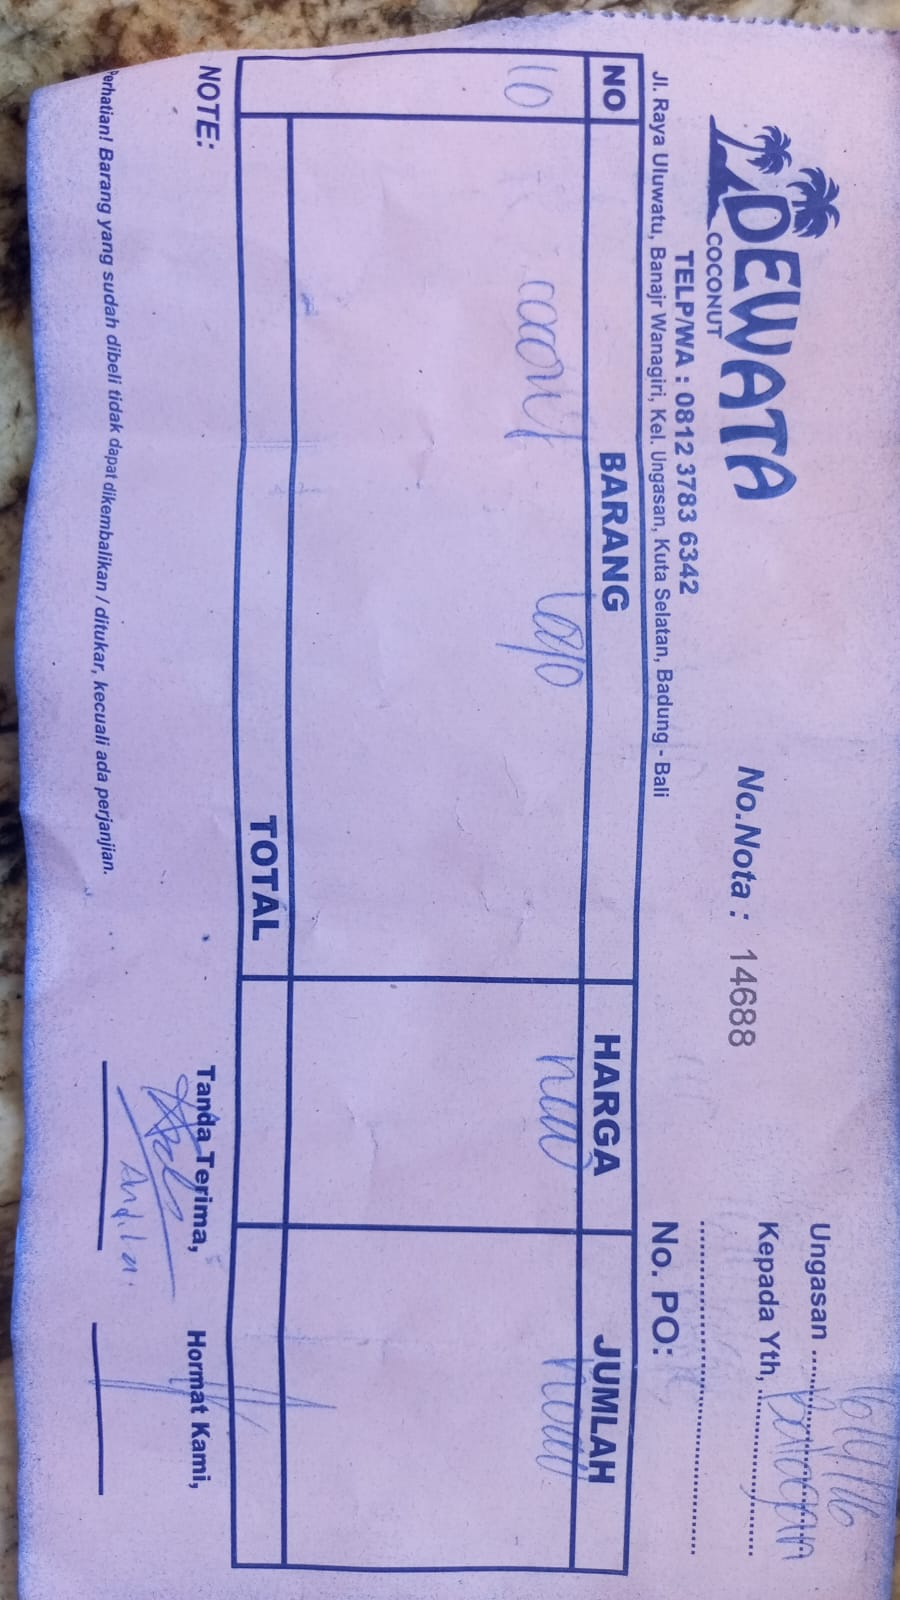 DEWATA
COCONUT
TELP/WA : 0812 3783 6342
Jl. Raya Uluwatu, Banajr Wanagiri, Kel. Ungasan, Kuta Selatan, Badung - Bali
No.Nota : 14688
Ungasan
Kepada Yth,
No. PO:
NO BARANG HARGA JUMLAH
10 coconut logo
TOTAL
NOTE:
Tanda Terima, Hormat Kami,
Perhatian! Barang yang sudah dibeli tidak dapat dikembalikan / ditukar, kecuali ada perjanjian.